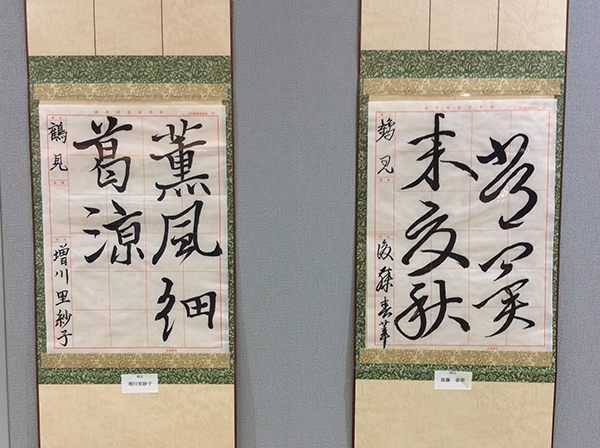 薫風細
葛涼
鶴見 増川里紗子
増川里紗子
未交秋
鶴見 後藤春華
後藤 春華